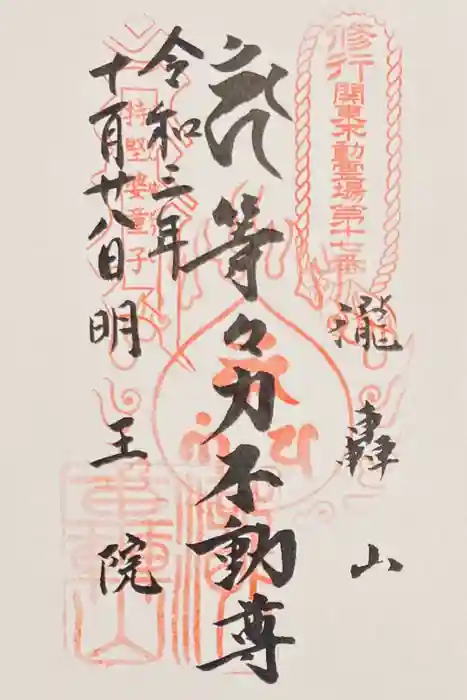 修行
関東不動霊場第十七番
瀧轟山
等々力不動尊
令和三年
十一月廿八日
明王院
持堅婆童子